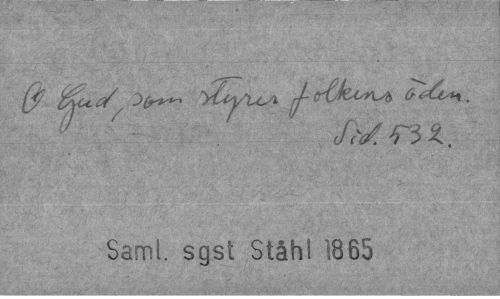 O Gud, som styrer folkens öden.
Sid. 532.
Saml. sgst Ståhl 1865